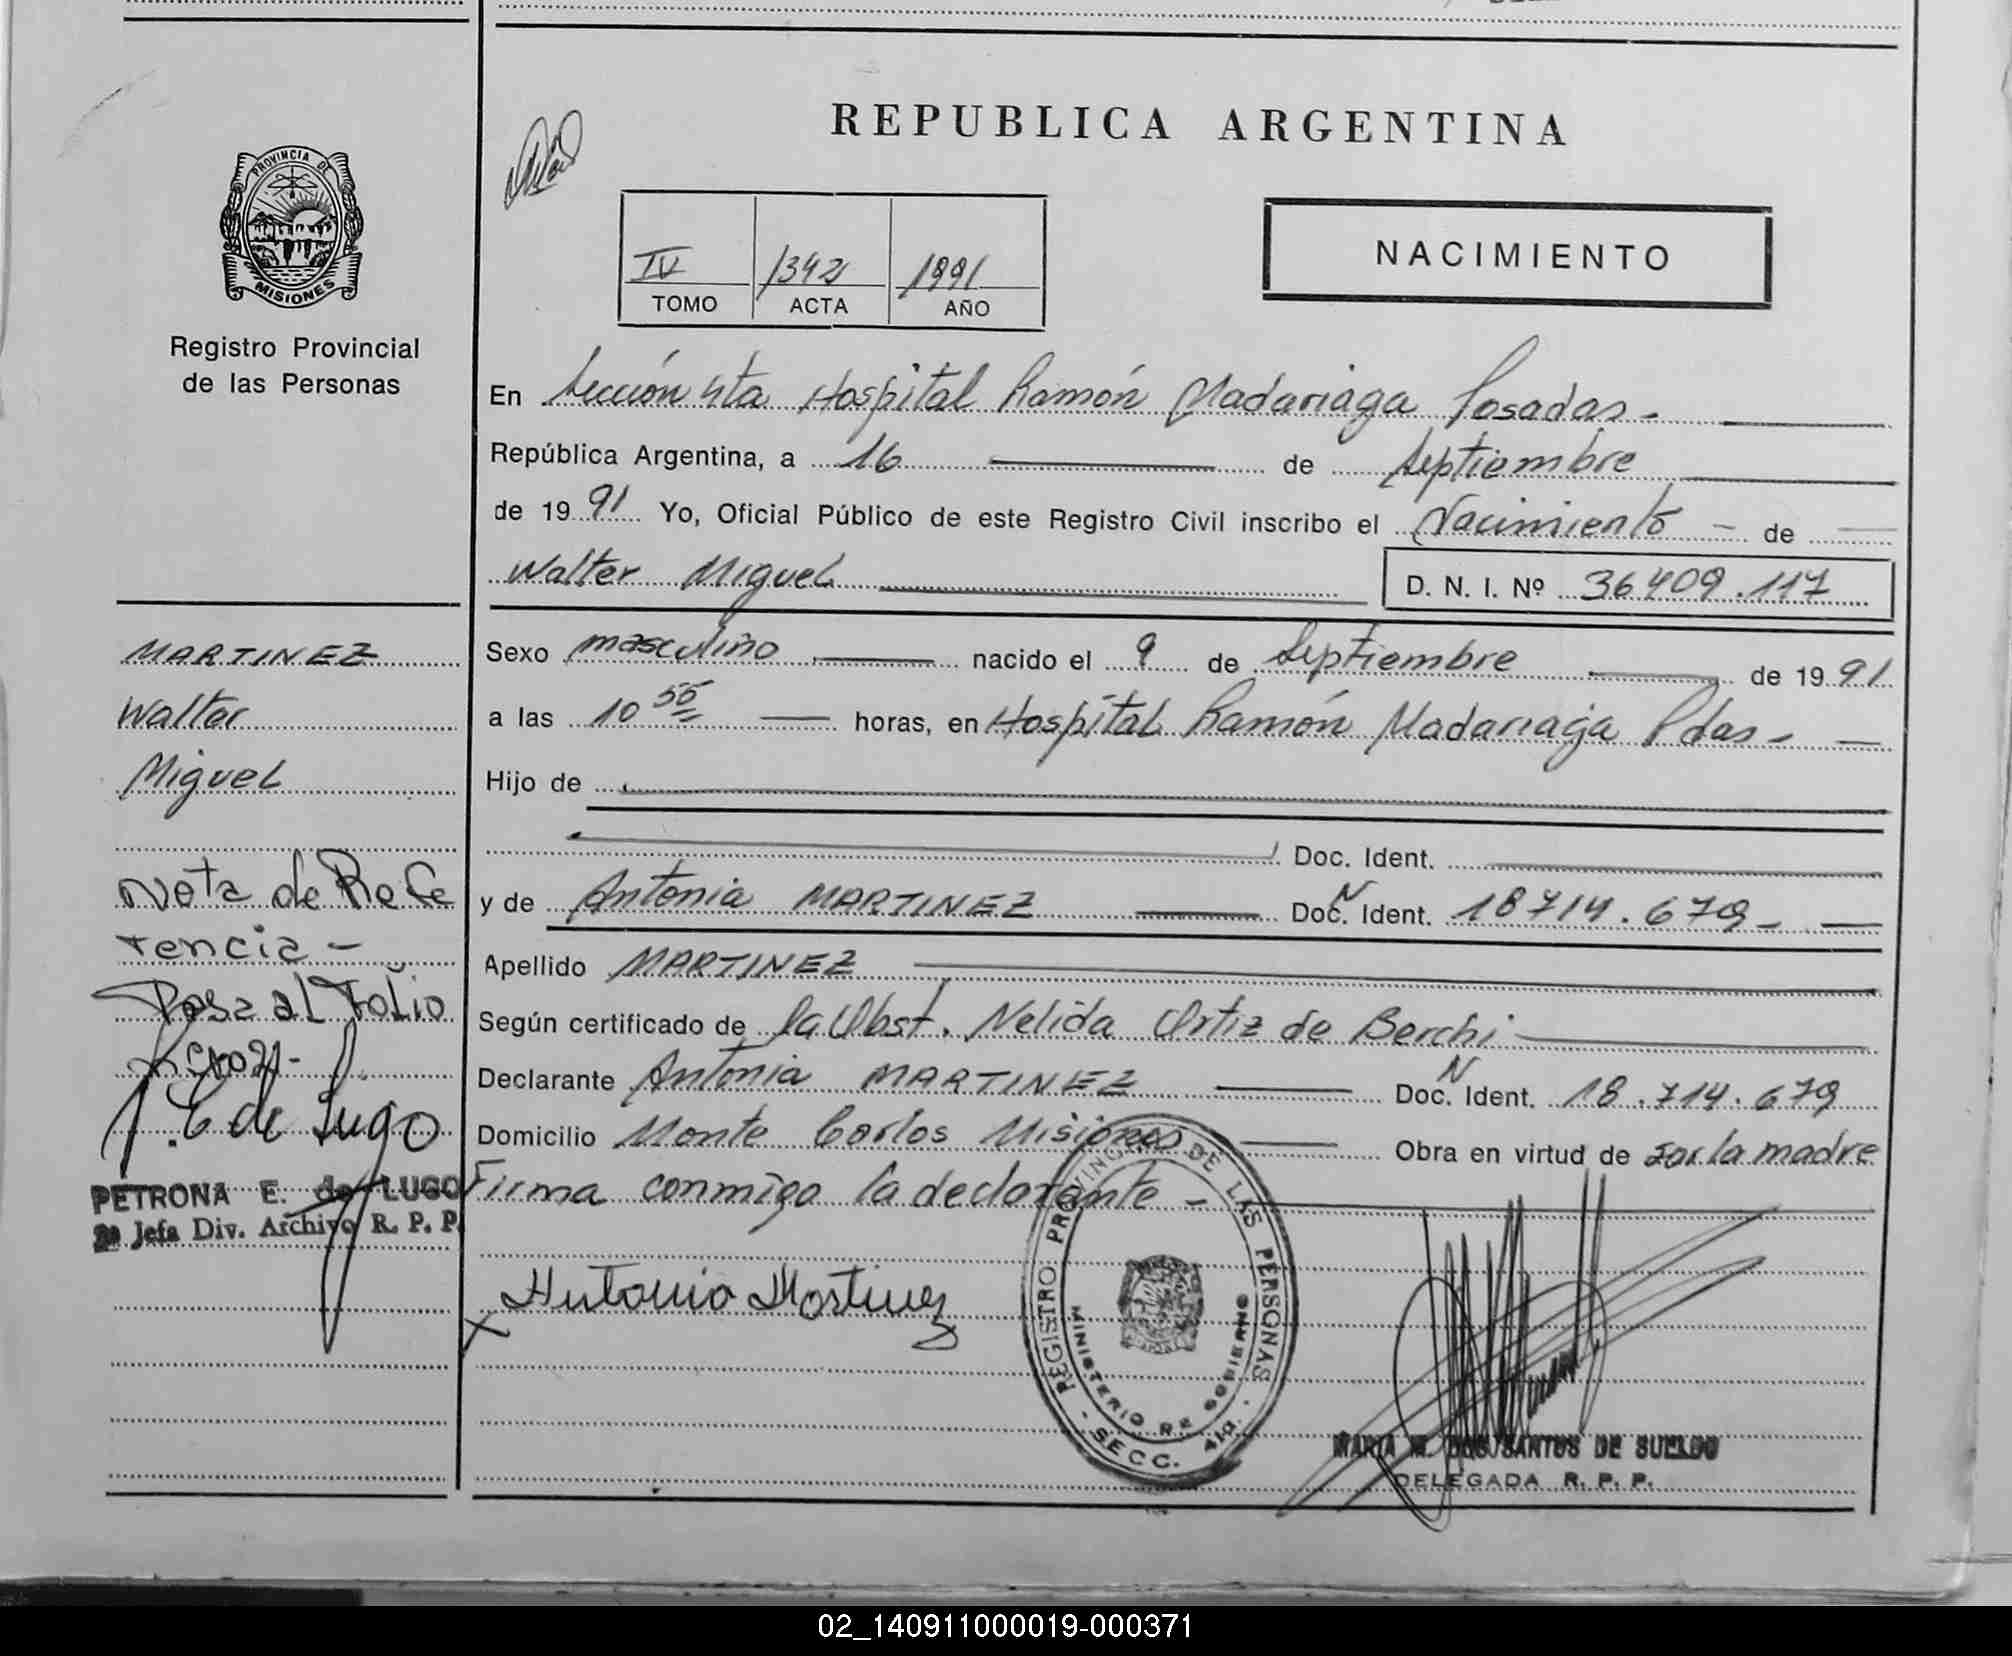 REPUBLICA ARGENTINA
PROVINCIA DE
MISIONES
Registro Provincial
de las Personas
IV 1342 1991
TOMO ACTA AÑO
NACIMIENTO
En Sección 4ta Hospital Ramón Madariaga Posadas.-
República Argentina, a 16 de Septiembre
de 1991 Yo, Oficial Público de este Registro Civil inscribo el Nacimiento - de
Walter Miguel D. N. I. Nº 36409.117
Sexo masculino nacido el 9 de Septiembre de 1991
a las 10 55 horas, en Hospital Ramón Madariaga Pdas -
Hijo de
Doc. Ident.
y de Antonia MARTINEZ Doc. N Ident. 18714.679-
Apellido MARTINEZ
Según certificado de la Obst. Nelida Ortiz de Berchi
Declarante Antonia MARTINEZ Doc. N Ident. 18.714.679
Domicilio Monte Carlos Misiones Obra en virtud de ser la madre
Firma conmigo la declarante -
MARTINEZ
Walter
Miguel
Nota de Refe
rencia -
Pasa al Folio
P. E de Lugo
PETRONA E. de LUGO
Jefa Div. Archivo R. P. P.
x Antonia Martinez
REGISTRO PROVINCIAL DE LAS PERSONAS
MINISTERIO DE GOBIERNO
- SECC. 4ta. -
MARIA M. DOS SANTOS DE SUELDO
DELEGADA R. P. P.
02_140911000019-000371